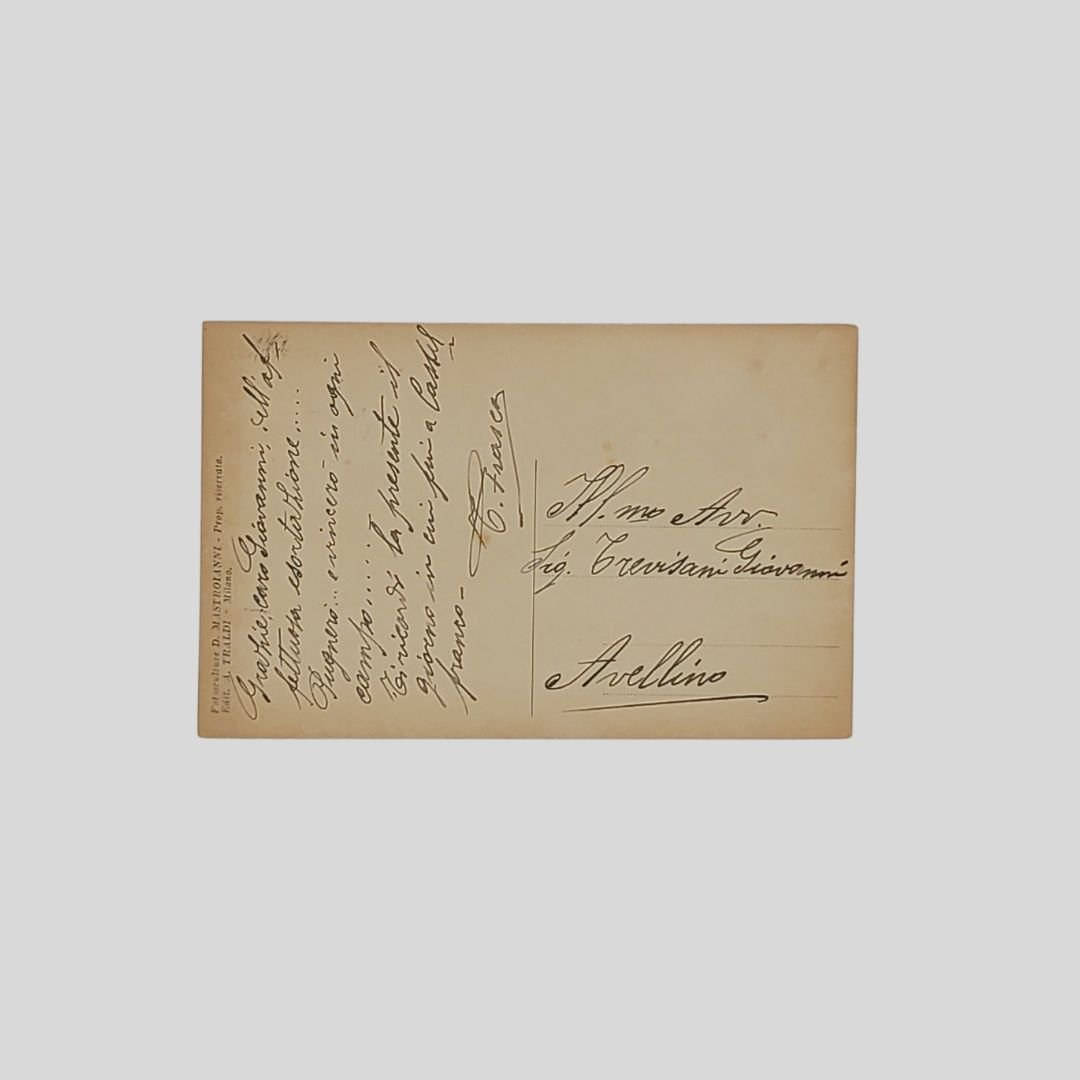 Fotosculture D. MASTROIANNI - Prop. riservata.
Edit. A. TRALDI - Milano.
Grazie, caro Giovanni, dell'af-
fettuosa esortazione....
Pugnerò... e vincerò in ogni
campo....:
Ti ricordi la presente il
giorno in cui fui a Castel-
franco -
C. Frasca
Ill.mo Avv.
Sig. Trevisani Giovanni
Avellino